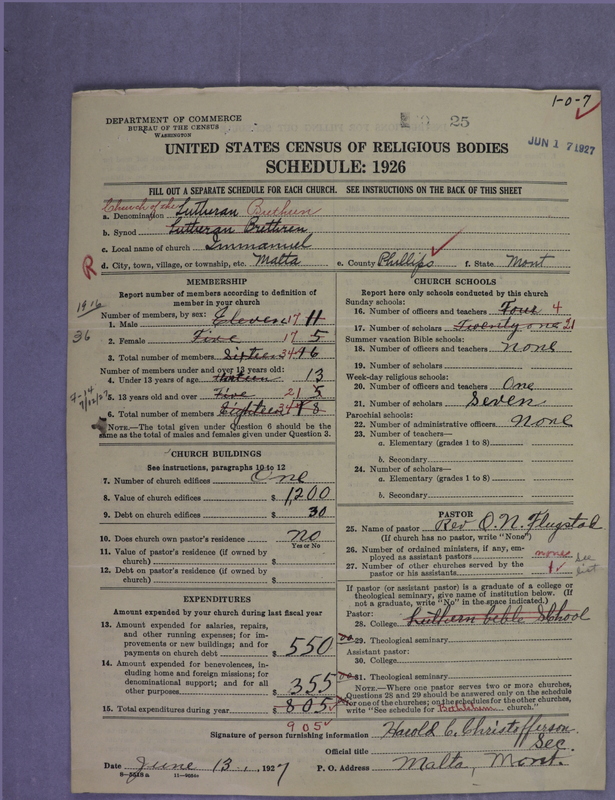 1-0-7
DEPARTMENT OF COMMERCE
BUREAU OF THE CENSUS
WASHINGTON
25
JUN 17 1927
UNITED STATES CENSUS OF RELIGIOUS BODIES
SCHEDULE: 1926
FILL OUT A SEPARATE SCHEDULE FOR EACH CHURCH. SEE INSTRUCTIONS ON THE BACK OF THIS SHEET
Church of the
a. Denomination Lutheran Brethren
b. Synod Lutheran Brethren
c. Local name of church Immanuel
d. City, town, village, or township, etc. Malta e. County Phillips f. State Mont
R
MEMBERSHIP
Report number of members according to definition of
member in your church
1916
36
Number of members, by sex:
1. Male Eleven 17 11
2. Female Five 17 5
3. Total number of members Sixteen 34 16
Number of members under and over 13 years old:
4. Under 13 years of age thirteen 13
5. 13 years old and over Five 21 5
6. Total number of members Eighteen 34 18
NOTE.—The total given under Question 6 should be the
same as the total of males and females given under Question 3.
CHURCH BUILDINGS
See instructions, paragraphs 10 to 12
7. Number of church edifices One
8. Value of church edifices $ 1,200
9. Debt on church edifices $ 30
10. Does church own pastor's residence? no
Yes or No
11. Value of pastor's residence (if owned by
church) $
12. Debt on pastor's residence (if owned by
church) $
EXPENDITURES
Amount expended by your church during last fiscal year
13. Amount expended for salaries, repairs,
and other running expenses; for im-
provements or new buildings; and for
payments on church debt $ 550 00
14. Amount expended for benevolences, in-
cluding home and foreign missions; for
denominational support; and for all
other purposes $ 355 00
15. Total expenditures during year $ 805
905
CHURCH SCHOOLS
Report here only schools conducted by this church
Sunday schools:
16. Number of officers and teachers Four 4
17. Number of scholars Twenty one 21
Summer vacation Bible schools:
18. Number of officers and teachers none
19. Number of scholars
Week-day religious schools:
20. Number of officers and teachers One
21. Number of scholars Seven
Parochial schools:
22. Number of administrative officers None
23. Number of teachers—
a. Elementary (grades 1 to 8)
b. Secondary
24. Number of scholars—
a. Elementary (grades 1 to 8)
b. Secondary
PASTOR
25. Name of pastor Rev O. N. Flugstad
(If church has no pastor, write "None")
26. Number of ordained ministers, if any, em-
ployed as assistant pastors none
27. Number of other churches served by the
pastor or his assistants 1 See list
If pastor (or assistant pastor) is a graduate of a college or
theological seminary, give name of institution below. (If
not a graduate, write "No" in the space indicated.)
Pastor:
28. College Luthern bible School
29. Theological seminary
Assistant pastor:
30. College
31. Theological seminary
NOTE.—Where one pastor serves two or more churches,
Questions 28 and 29 should be answered only on the schedule
for one of the churches; on the schedules for the other churches,
write "See schedule for Bethlehem church."
Signature of person furnishing information Harold C. Christofferson
Official title Sec.
Date June 13, 1927 P. O. Address Malta, Mont.